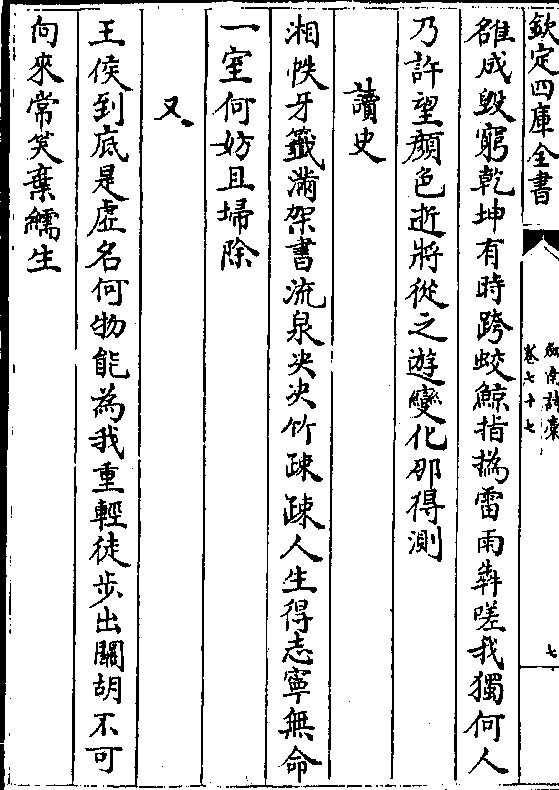 欽定四庫全書
劍南詩藁
卷七十七
七
雒成毁窮乾坤有時跨蛟鯨指撝雷雨犇嗟我獨何人
乃許望顏色逝將從之遊變化那得測
讀史
湘帙牙籤滿架書流泉决决竹疎疎人生得志寧無命
一室何妨且掃除
又
王侯到底是虛名何物能為我重輕徒步出關胡不可
向來常笑棄繻生